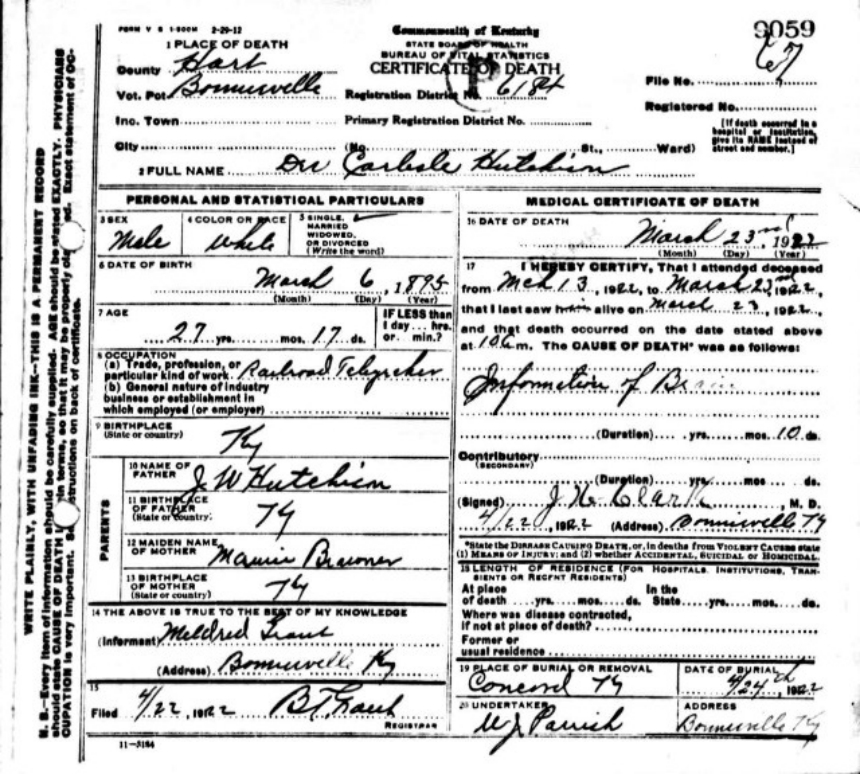 FORM V S 1-500M 2-29-12
Commonwealth of Kentucky
STATE BOARD OF HEALTH
BUREAU OF VITAL STATISTICS
CERTIFICATE OF DEATH
9059
67
1 PLACE OF DEATH
County Hart
Vot. Pct Bonnieville
Registration District No. 6184
File No.
Registered No.
Inc. Town
Primary Registration District No.
City (No. St., Ward)
[If death occurred in a hospital or institution, give its NAME instead of street and number.]
2 FULL NAME Carlisle Hutchison
PERSONAL AND STATISTICAL PARTICULARS
3 SEX Male
4 COLOR OR RACE White
5 SINGLE, MARRIED WIDOWED, OR DIVORCED (Write the word)
6 DATE OF BIRTH
March 6, 1895
(Month) (Day) (Year)
7 AGE
27 yrs. mos. 17 ds.
IF LESS than 1 day... hrs. or... min.?
8 OCCUPATION
(a) Trade, profession, or particular kind of work. Railroad Telegrapher
(b) General nature of industry business or establishment in which employed (or employer)
9 BIRTHPLACE
(State or country) Ky
PARENTS
10 NAME OF FATHER J. W Hutchison
11 BIRTHPLACE OF FATHER (State or country) Ky
12 MAIDEN NAME OF MOTHER
13 BIRTHPLACE OF MOTHER (State or country) Ky
14 THE ABOVE IS TRUE TO THE BEST OF MY KNOWLEDGE
(Informant) Mildred
(Address) Bonnieville Ky
15
Filed 4/22, 1922
REGISTRAR
11-3184
MEDICAL CERTIFICATE OF DEATH
16 DATE OF DEATH
March 23, 1922
(Month) (Day) (Year)
17 I HEREBY CERTIFY, That I attended deceased
from Mch 13, 1922, to March 23, 1922,
that I last saw him alive on March 23, 1922,
and that death occurred on the date stated above
at m. The CAUSE OF DEATH* was as follows:
of Brain
(Duration) yrs. mos. 10 ds.
Contributory
(SECONDARY)
(Duration) yrs. mos. ds.
(Signed) Clark, M. D.
4/22, 1922 (Address) Bonnieville Ky
*State the DISEASE CAUSING DEATH, or, in deaths from VIOLENT CAUSES state
(1) MEANS OF INJURY; and (2) whether ACCIDENTAL, SUICIDAL or HOMICIDAL.
18 LENGTH OF RESIDENCE (FOR HOSPITALS, INSTITUTIONS, TRANSIENTS OR RECENT RESIDENTS)
At place of death yrs. mos. ds. In the State yrs. mos. ds.
Where was disease contracted, if not at place of death?
Former or usual residence
19 PLACE OF BURIAL OR REMOVAL
Concord Ky
DATE OF BURIAL
4/24th, 1922
20 UNDERTAKER
W J Parrish
ADDRESS
Bonnieville Ky
WRITE PLAINLY, WITH UNFADING INK—THIS IS A PERMANENT RECORD
N. B.—Every item of information should be carefully supplied. AGE should be stated EXACTLY. PHYSICIANS
should state CAUSE OF DEATH in terms, so that it may be properly Exact statement of OC-
CUPATION is very important. on back of certificate.